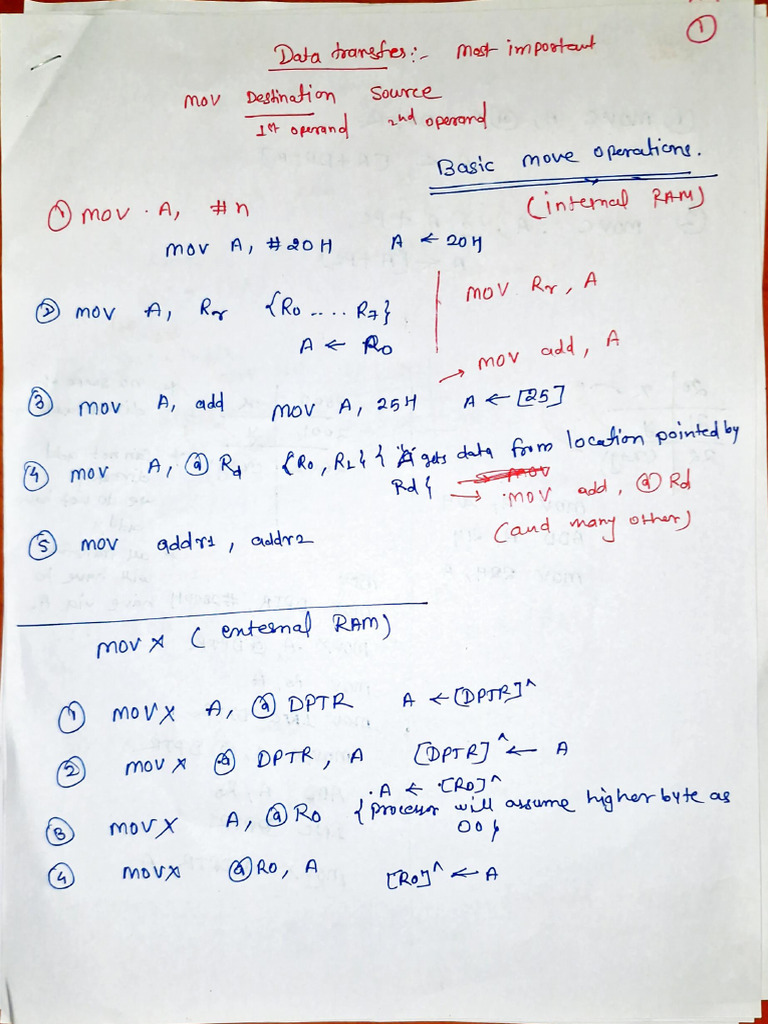 ①
Data transfer:- most important
mov Destination Source
1st operand 2nd operand
Basic move operations.
(internal RAM)
① mov . A, #n
mov A, #20H A ← 20H
② mov A, Rr {R0 .... R7}
A ← R0
mov Rr, A
→ mov add, A
③ mov A, add mov A, 25H A ← [25]
④ mov A, @ Rd {R0, R1} { A gets data from location pointed by
Rd} → mov add, @ Rd
(and many other)
⑤ mov addr1, addr2
movx (external RAM)
① movx A, @ DPTR A ← [DPTR]^
② movx @ DPTR, A [DPTR]^ ← A
.A ← .[R0]^
③ movx A, @ R0 {Procesor will assume higher byte as
00}
④ movx @R0, A [R0]^ ← A